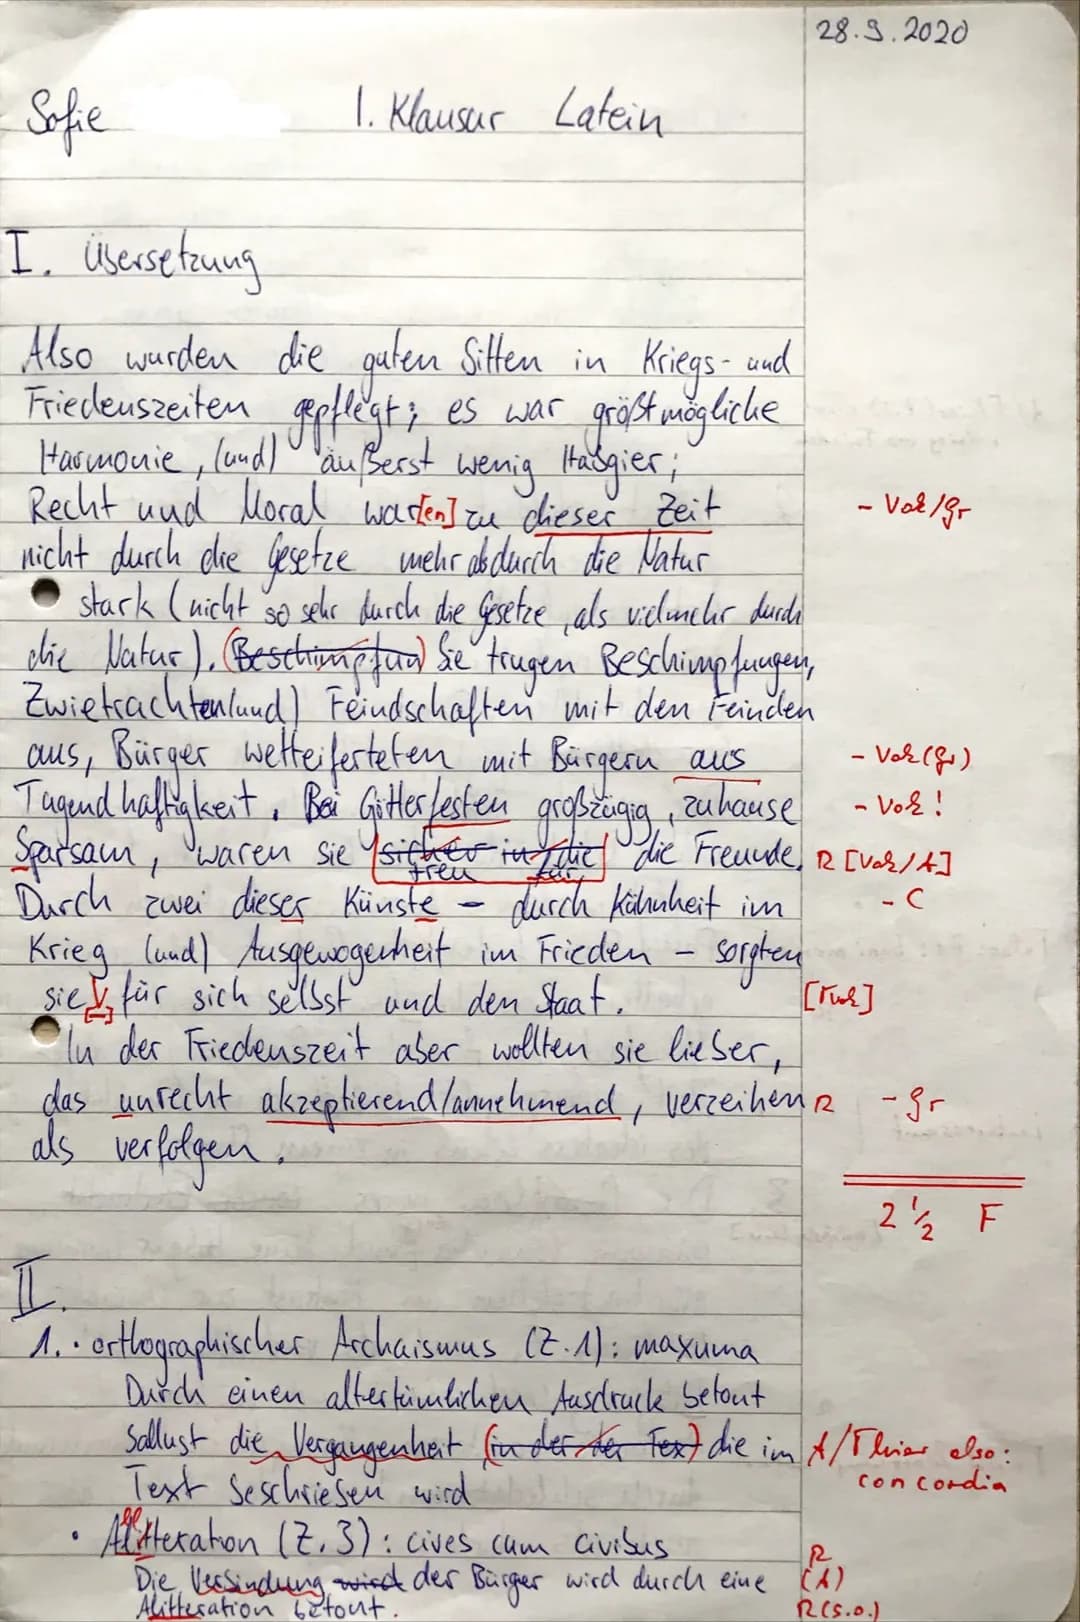 28.9.2020
Sofie 1. Klausur Latein
I. Übersetzung
Also wurden die guten Sitten in Kriegs- und
Friedenszeiten gepflegt; es war größtmögliche
Harmonie, (und) äußerst wenig Habgier;
Recht und Moral war[en] zu dieser Zeit - Vok/gr
nicht durch die Gesetze mehr als durch die Natur
stark (nicht so sehr durch die Gesetze, als vielmehr durch
die Natur). (Beschimpfun) Sie trugen Beschimpfungen,
Zwietrachten (und) Feindschaften mit den Feinden
aus, Bürger wetteiferteten mit Bürgern aus - Vok (gr)
Tugendhaftigkeit. Bei Götterfesten großzügig, zuhause - Vok!
Sparsam, waren sie sicher in die die Freunde. R [Vok/A]
treu für
Durch zwei dieser Künste – durch Kühnheit im - C
Krieg (und) Ausgewogenheit im Frieden – sorgten
sie V für sich selbst und den Staat. [Vok]
In der Friedenszeit aber wollten sie lieber,
das unrecht akzeptierend/annehmend, verzeihen R - gr
als verfolgen.
2 1/2 F
II.
1. • orthographischer Archaismus (Z.1): maxuma
Durch einen altertümlichen Ausdruck betont
Sallust die Vergangenheit (in der der Tex) die im A/T hier also:
Text beschrieben wird concordia
• Alitteration (Z.3): cives cum civibus R
Die Verbindung wird der Bürger wird durch eine (A)
Alitteration betont. R (s.o.)